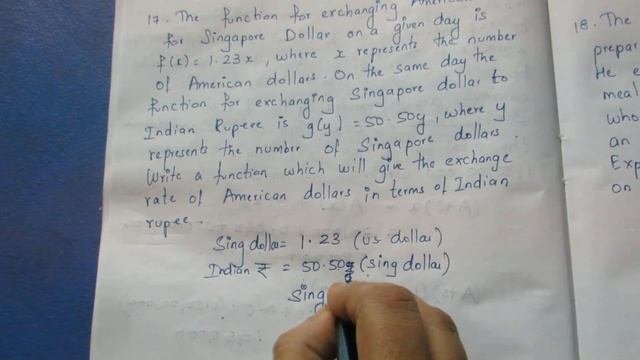 17. The function for exchanging American
for Singapore Dollar on a given day is
f(x) = 1.23x, where x represents the number
of American dollars. On the same day the
function for exchanging Singapore dollar to
Indian Rupere is g(y) = 50.50y, where y
represents the number of Singapore dollars.
Write a function which will give the exchange
rate of American dollars in terms of Indian
rupee.
Sing dollar = 1.23 (US dollar)
Indian ₹ = 50.50 (sing dollar)
Sing
18. The
prepar
He e
meal
who
an
Exp
on